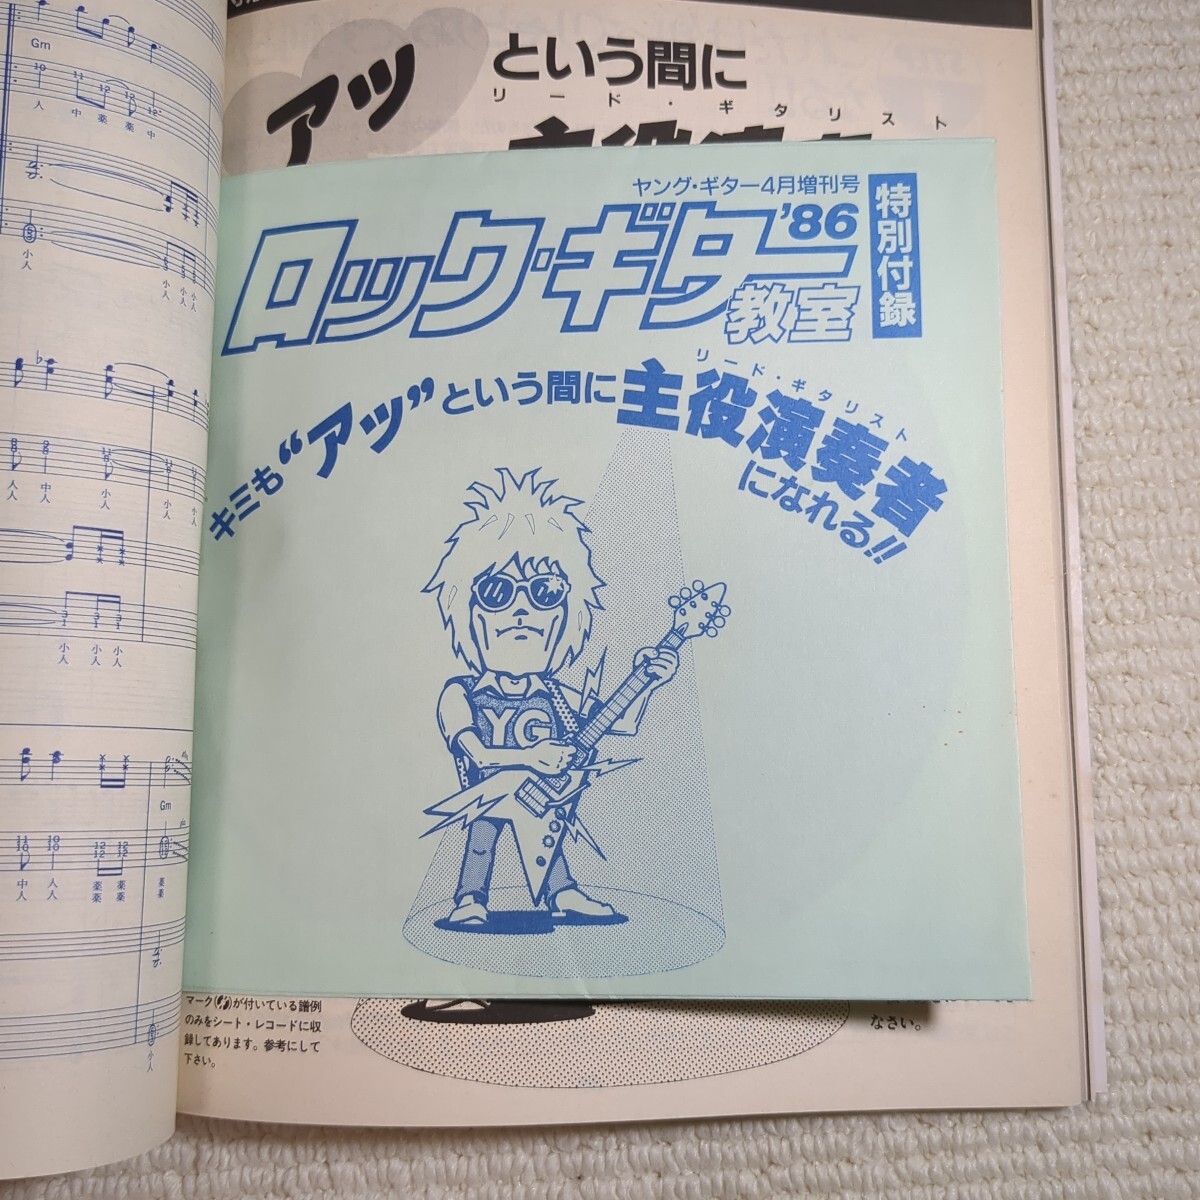 アッ
という間に
リード・ギタリスト
ヤング・ギター4月増刊号
ロック・ギター'86
教室
特別付録
リード・ギタリスト
キミも“アッ”という間に主役演奏者
になれる!!
YG
マーク( )が付いている譜例
のみをシート・レコードに収
録してあります。参考にして
下さい。
なさい。
Gm
人 中 薬 薬 中
小人
小人 小人 小人
人人 中人 小人 小人 小人
小人 小人 小人
Gm
中人 人人 薬薬 薬薬 薬薬
小人